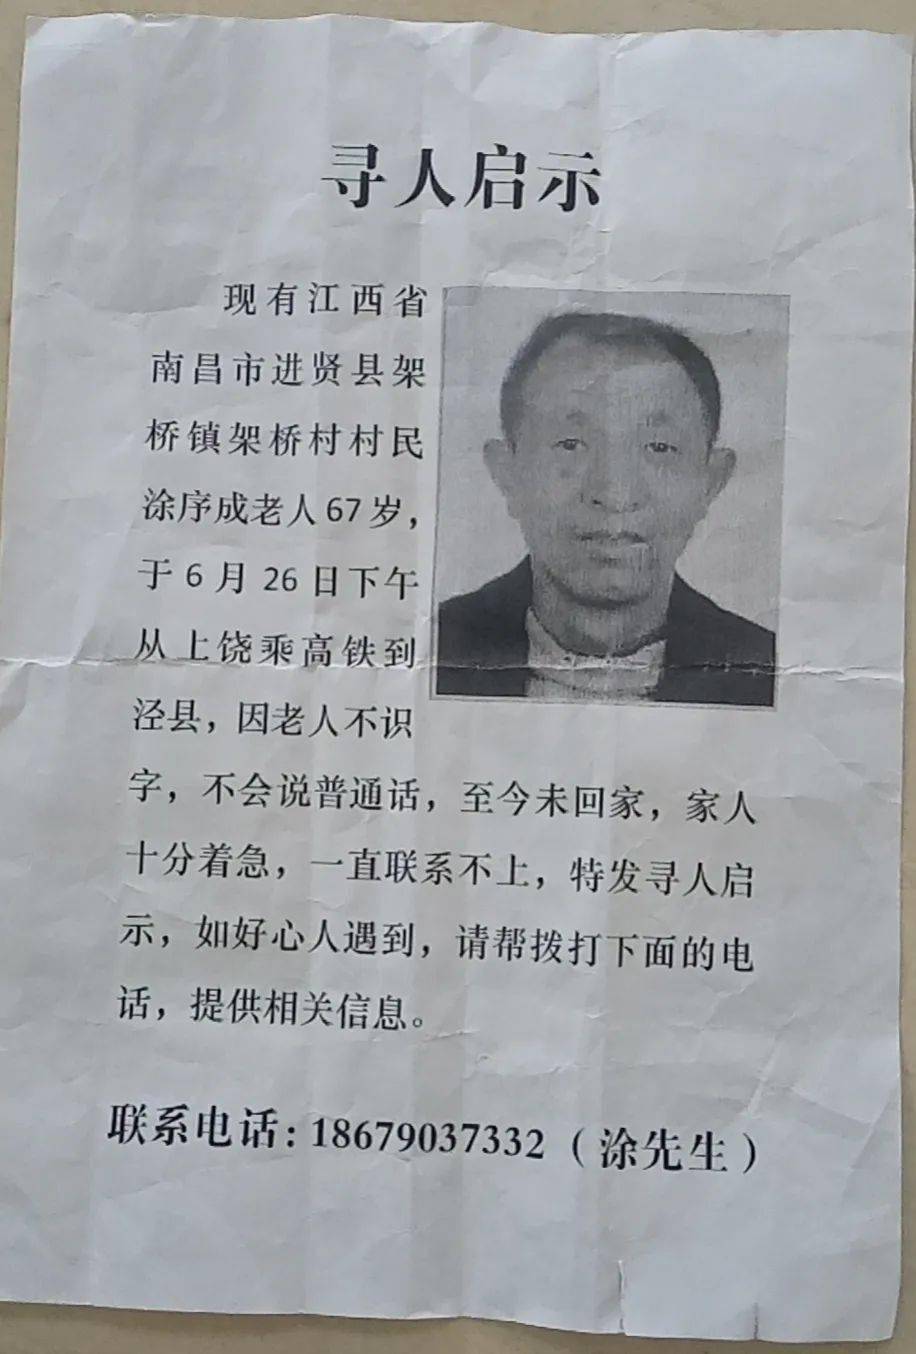 寻人启示
现有江西省
南昌市进贤县架
桥镇架桥村村民
涂序成老人67岁，
于6月26日下午
从上饶乘高铁到
泾县，因老人不识
字，不会说普通话，至今未回家，家人
十分着急，一直联系不上，特发寻人启
示，如好心人遇到，请帮拨打下面的电
话，提供相关信息。
联系电话：18679037332（涂先生）